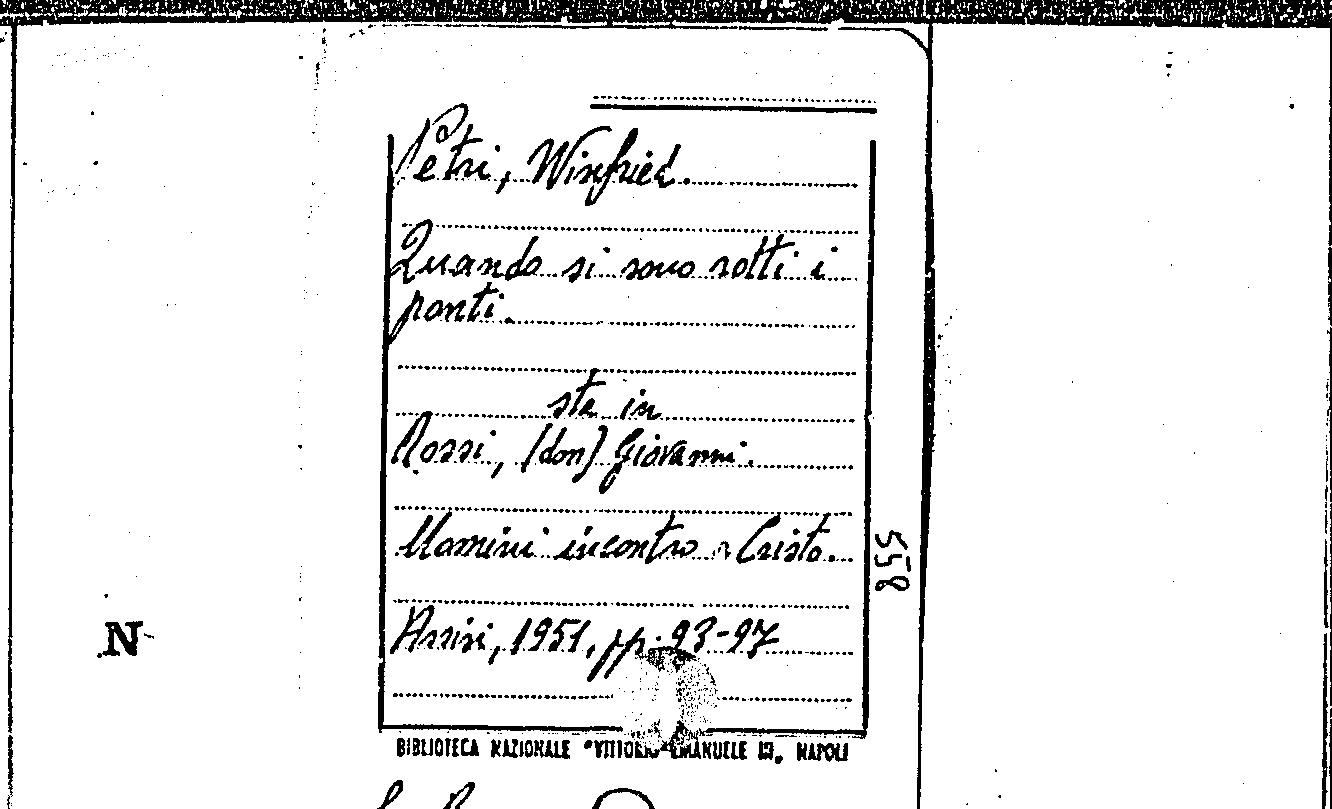 Petri, Winfried.
Quando si sono rotti i
ponti.
sta in
Rossi, (don) Giovanni.
Uomini incontro a Cristo.
Assisi, 1951, pp. 93-97
558
N
BIBLIOTECA NAZIONALE "VITTORIO EMANUELE III", NAPOLI